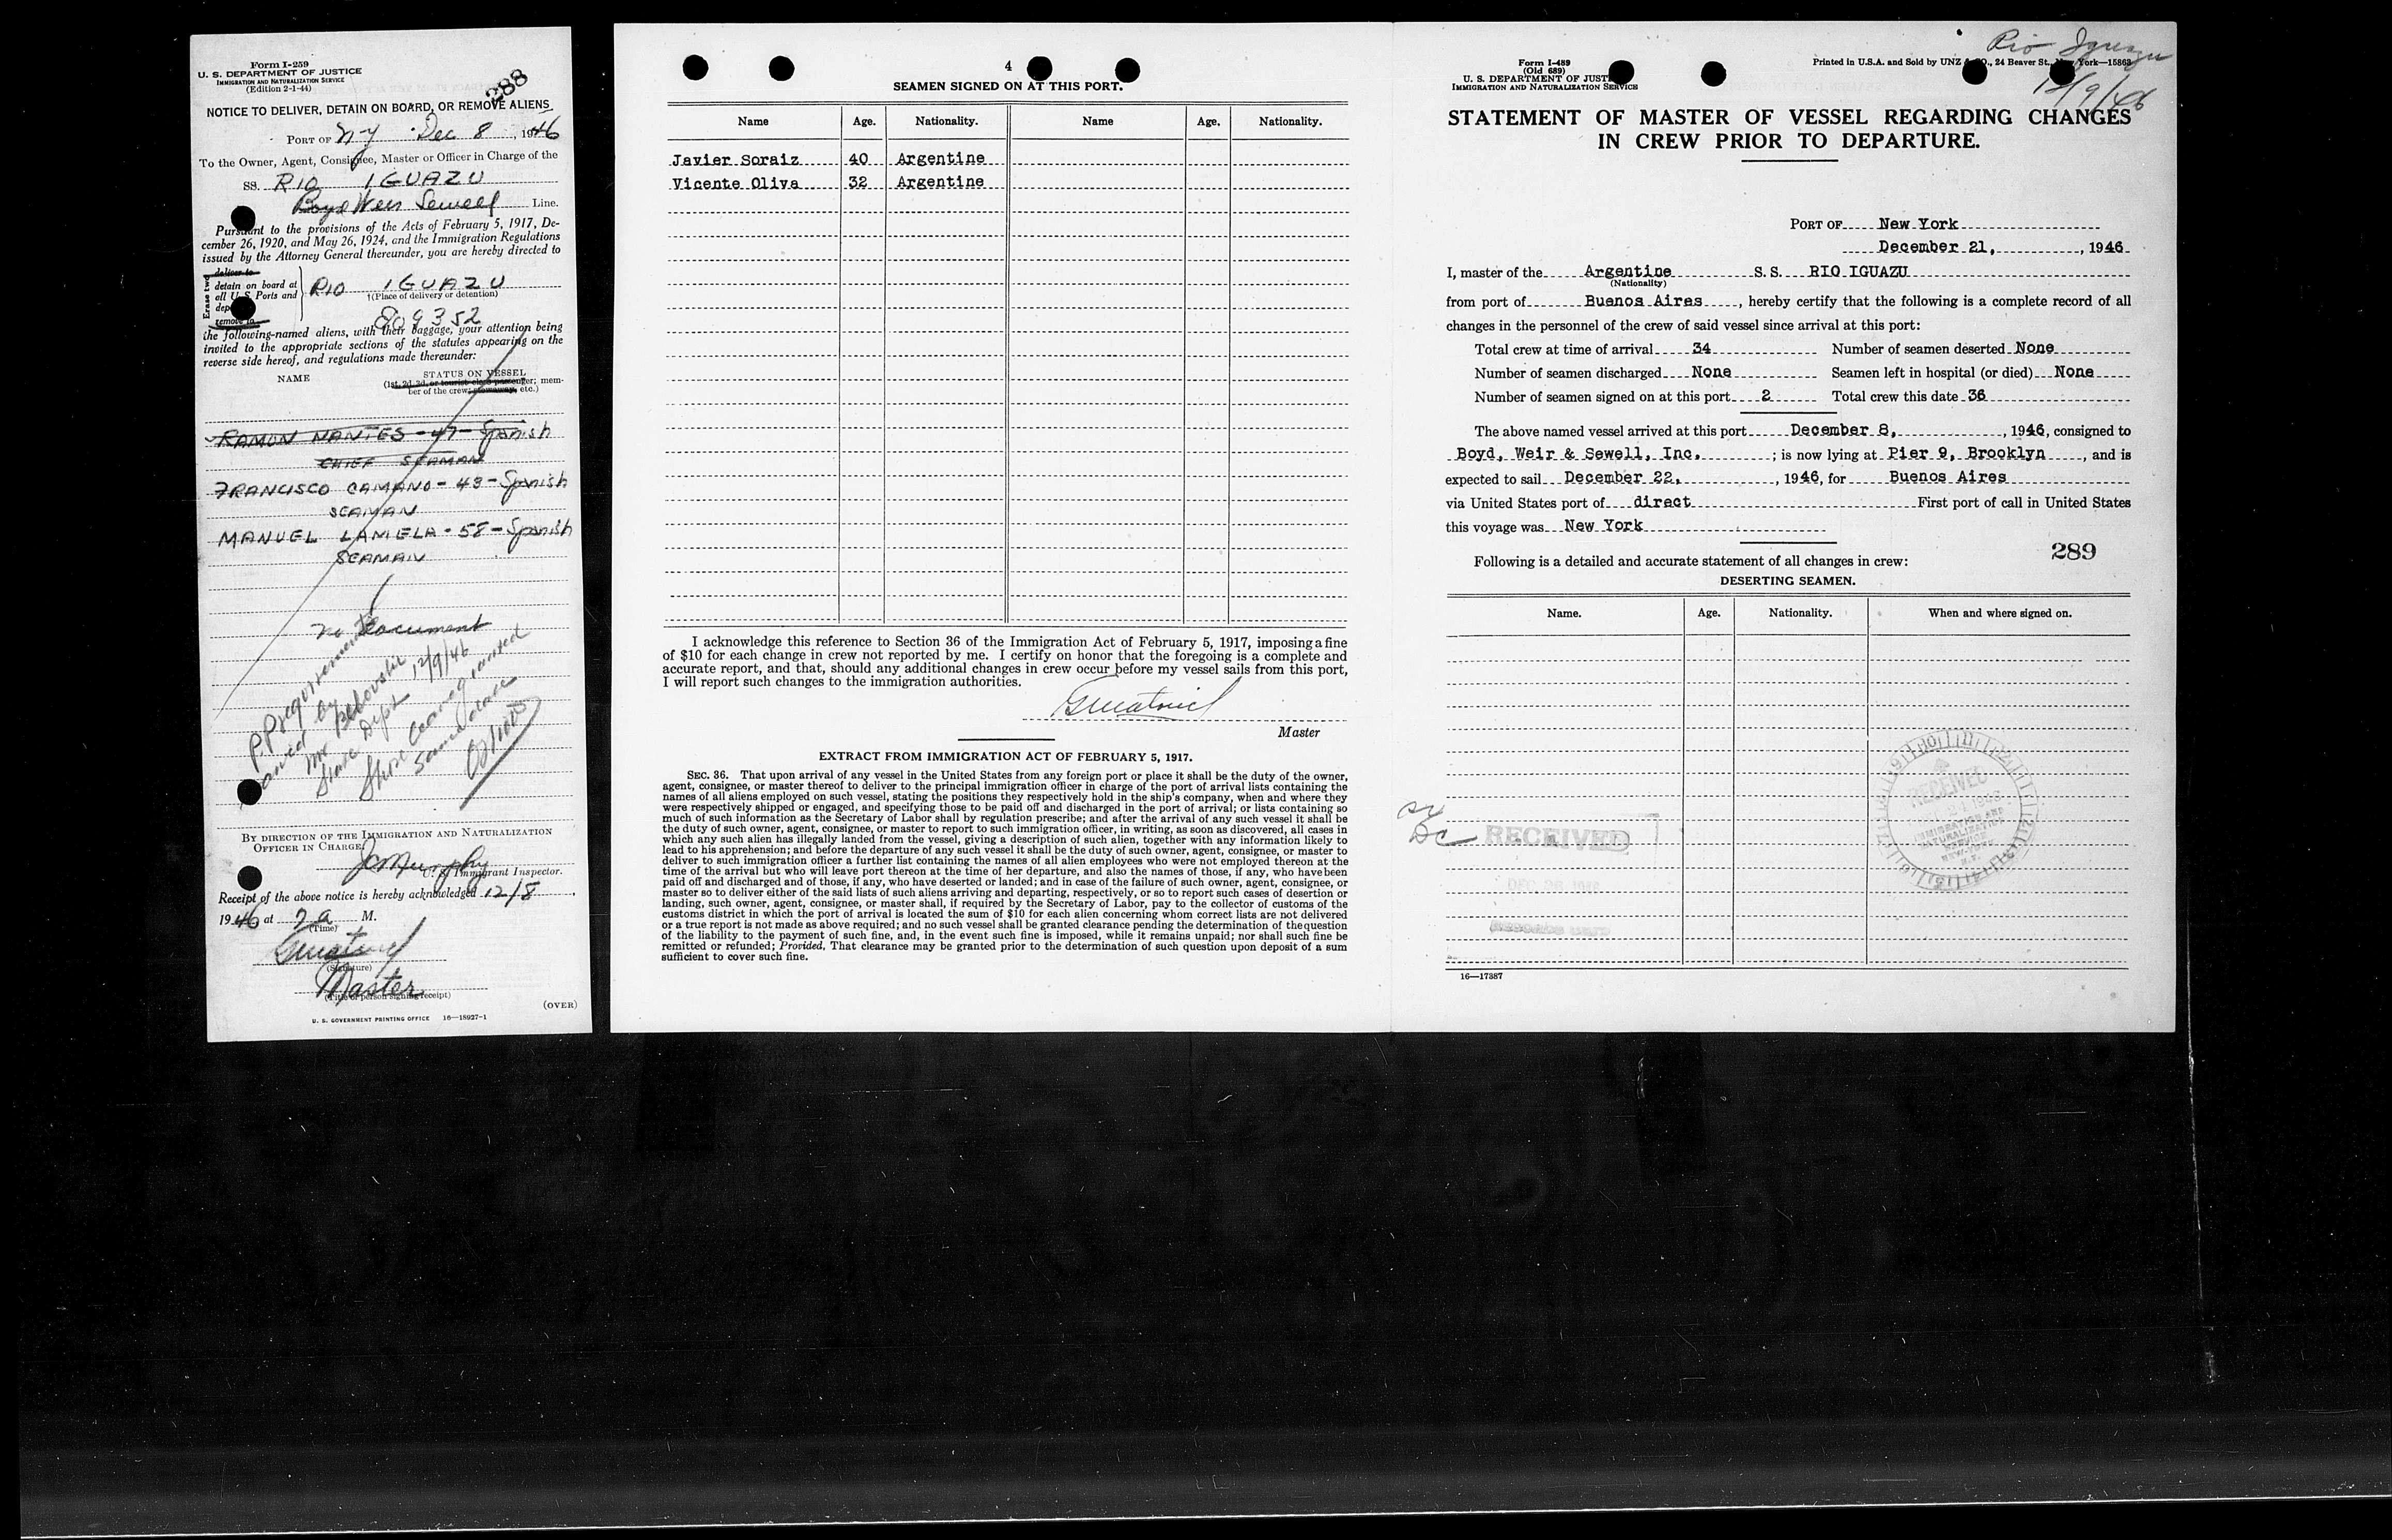 Form I-259
U. S. DEPARTMENT OF JUSTICE
IMMIGRATION AND NATURALIZATION SERVICE
(Edition 2-1-44)
288
NOTICE TO DELIVER, DETAIN ON BOARD, OR REMOVE ALIENS
PORT OF N-Y Dec 8, 1946
To the Owner, Agent, Consignee, Master or Officer in Charge of the
SS. RIO IGUAZU
Boyd Weir Sewell Line.
Pursuant to the provisions of the Acts of February 5, 1917, De-
cember 26, 1920, and May 26, 1924, and the Immigration Regulations
issued by the Attorney General thereunder, you are hereby directed to
Erase two
deliver to
detain on board at
all U. S. Ports and
remove to
RIO IGUAZU
†(Place of delivery or detention)
809352
the following-named aliens, with their baggage, your attention being
invited to the appropriate sections of the statutes appearing on the
reverse side hereof, and regulations made thereunder:
NAME STATUS ON VESSEL
(1st, 2d, 3d, or tourist class passenger; mem-
ber of the crew, stowaway, etc.)
RAMON NANTES - 47 - Spanish
CHIEF SEAMAN
FRANCISCO CAMANO - 43 - Spanish
SEAMAN
MANUEL LAMELA - 58 - Spanish
SEAMAN
No Document
P.P. requirements
by
Mr 12/9/46
State Dept
Shore leave granted
same date
BY DIRECTION OF THE IMMIGRATION AND NATURALIZATION
OFFICER IN CHARGE
J Murphy
U. S. Immigrant Inspector.
Receipt of the above notice is hereby acknowledged 12/8,
1946 at 7 a M.
(Time)
(Signature)
Master
(Title of person signing receipt)
(OVER)
U. S. GOVERNMENT PRINTING OFFICE 16—18927-1
4
SEAMEN SIGNED ON AT THIS PORT.
Name Age. Nationality. Name Age. Nationality.
Javier Soraiz 40 Argentine
Vicente Oliva 32 Argentine
I acknowledge this reference to Section 36 of the Immigration Act of February 5, 1917, imposing a fine
of $10 for each change in crew not reported by me. I certify on honor that the foregoing is a complete and
accurate report, and that, should any additional changes in crew occur before my vessel sails from this port,
I will report such changes to the immigration authorities.
Master
EXTRACT FROM IMMIGRATION ACT OF FEBRUARY 5, 1917.
SEC. 36. That upon arrival of any vessel in the United States from any foreign port or place it shall be the duty of the owner,
agent, consignee, or master thereof to deliver to the principal immigration officer in charge of the port of arrival lists containing the
names of all aliens employed on such vessel, stating the positions they respectively hold in the ship's company, when and where they
were respectively shipped or engaged, and specifying those to be paid off and discharged in the port of arrival; or lists containing so
much of such information as the Secretary of Labor shall by regulation prescribe; and after the arrival of any such vessel it shall be
the duty of such owner, agent, consignee, or master to report to such immigration officer, in writing, as soon as discovered, all cases in
which any such alien has illegally landed from the vessel, giving a description of such alien, together with any information likely to
lead to his apprehension; and before the departure of any such vessel it shall be the duty of such owner, agent, consignee, or master to
deliver to such immigration officer a further list containing the names of all alien employees who were not employed thereon at the
time of the arrival but who will leave port thereon at the time of her departure, and also the names of those, if any, who have been
paid off and discharged and of those, if any, who have deserted or landed; and in case of the failure of such owner, agent, consignee, or
master so to deliver either of the said lists of such aliens arriving and departing, respectively, or so to report such cases of desertion or
landing, such owner, agent, consignee, or master shall, if required by the Secretary of Labor, pay to the collector of customs of the
customs district in which the port of arrival is located the sum of $10 for each alien concerning whom correct lists are not delivered
or a true report is not made as above required; and no such vessel shall be granted clearance pending the determination of the question
of the liability to the payment of such fine, and, in the event such fine is imposed, while it remains unpaid; nor shall such fine be
remitted or refunded; Provided, That clearance may be granted prior to the determination of such question upon deposit of a sum
sufficient to cover such fine.
Rio Iguazu
12/9/46
Form I-489
(Old 689)
U. S. DEPARTMENT OF JUSTICE
IMMIGRATION AND NATURALIZATION SERVICE
Printed in U.S.A. and Sold by UNZ & CO., 24 Beaver St., New York—15863
STATEMENT OF MASTER OF VESSEL REGARDING CHANGES
IN CREW PRIOR TO DEPARTURE.
PORT OF New York
December 21, 1946
I, master of the Argentine S. S. RIO IGUAZU
(Nationality)
from port of Buenos Aires, hereby certify that the following is a complete record of all
changes in the personnel of the crew of said vessel since arrival at this port:
Total crew at time of arrival 34 Number of seamen deserted None
Number of seamen discharged None Seamen left in hospital (or died) None
Number of seamen signed on at this port 2 Total crew this date 36
The above named vessel arrived at this port December 8, 1946, consigned to
Boyd, Weir & Sewell, Inc. ; is now lying at Pier 9, Brooklyn, and is
expected to sail December 22, 1946, for Buenos Aires
via United States port of direct First port of call in United States
this voyage was New York
289
Following is a detailed and accurate statement of all changes in crew:
DESERTING SEAMEN.
Name. Age. Nationality. When and where signed on.
RECEIVED
IMMIGRATION AND
NATURALIZATION
SERVICE
NEW YORK
N.Y.
RECEIVED
DEC 26 1946
16—17387